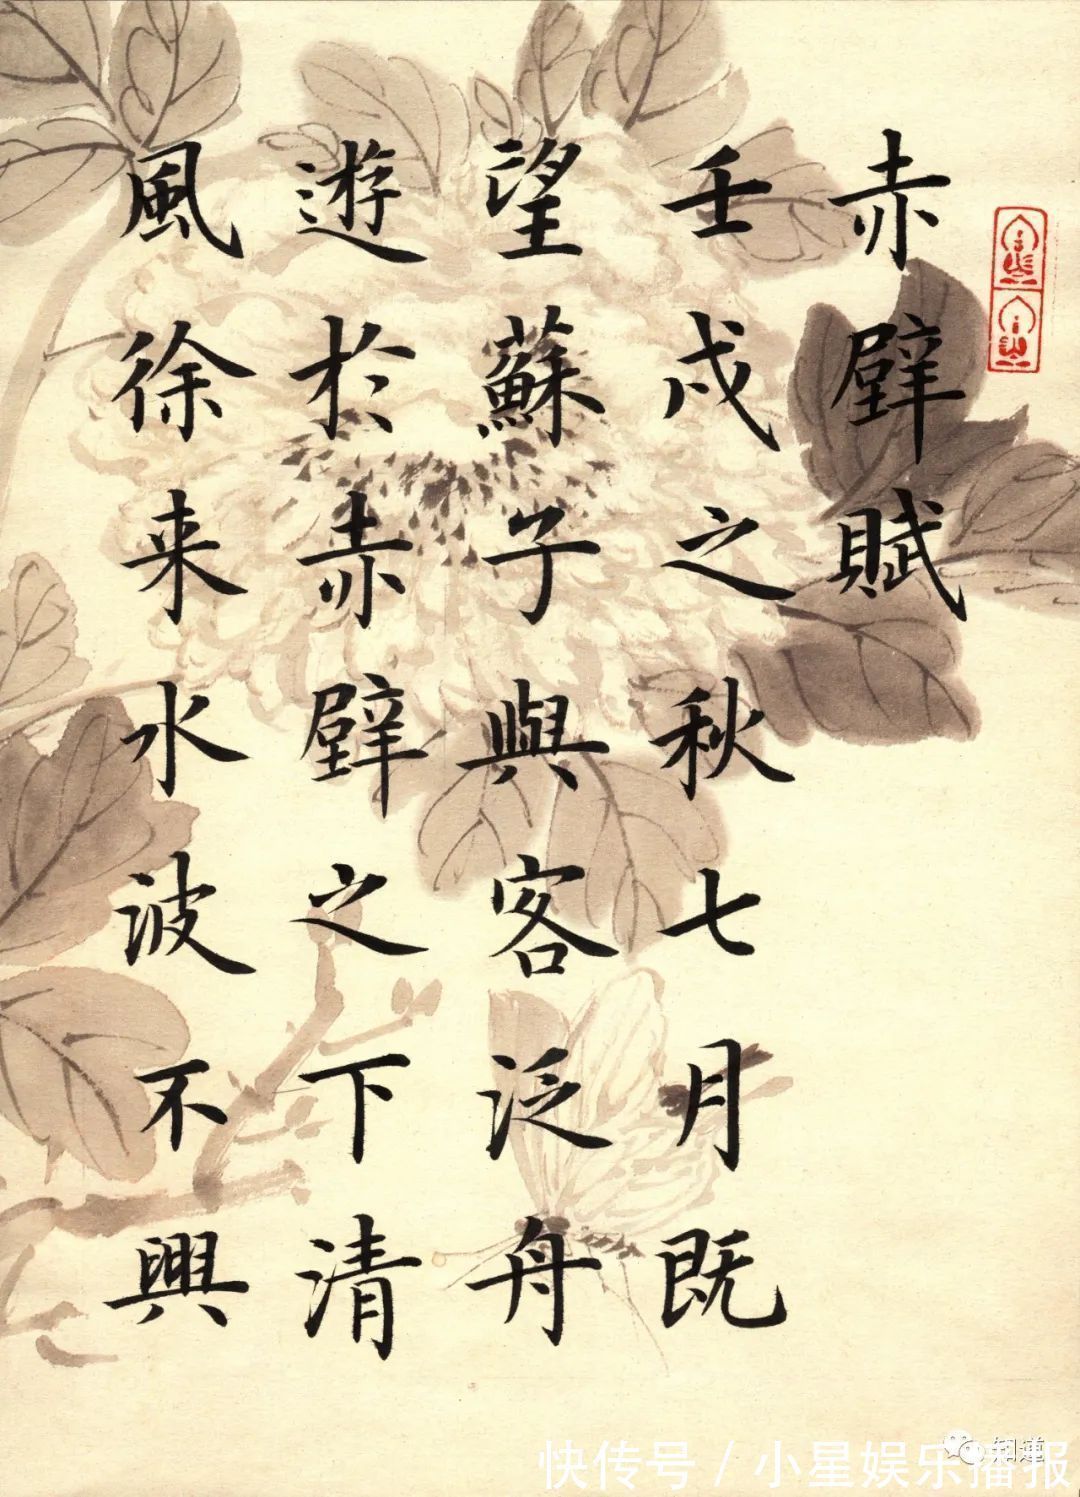 赤壁賦
壬戌之秋七月既
望蘇子與客泛舟
遊於赤壁之下清
風徐来水波不興
快传号/小星娱乐播报